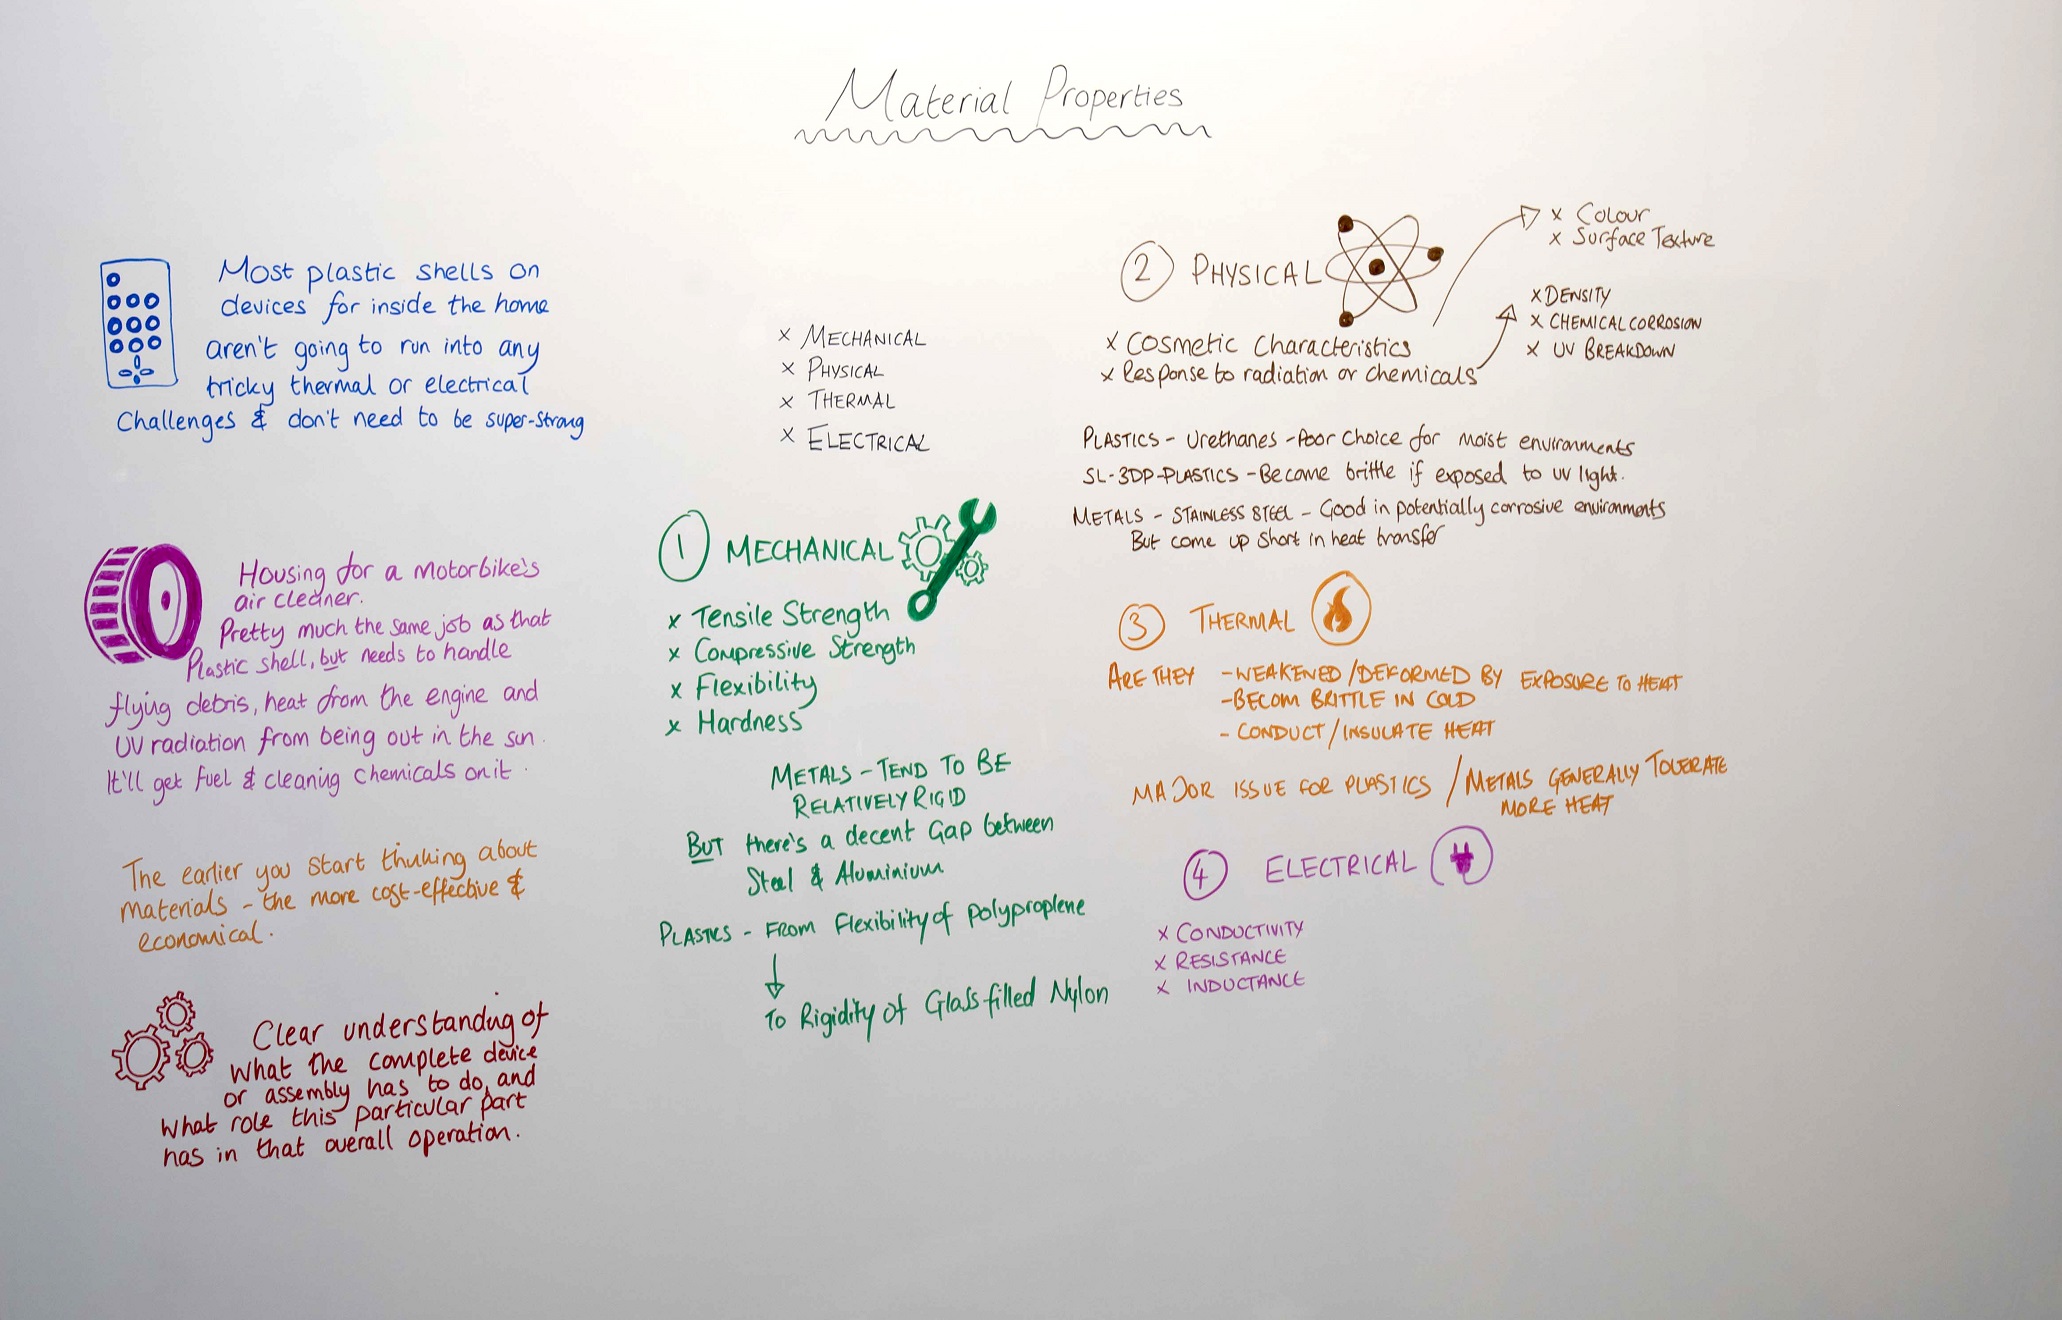 Material Properties
Most plastic shells on
devices for inside the home
aren't going to run into any
tricky thermal or electrical
Challenges & don't need to be super-strong
Housing for a motorbike's
air cleaner.
Pretty much the same job as that
Plastic shell, but needs to handle
flying debris, heat from the engine and
UV radiation from being out in the sun.
It'll get fuel & cleaning chemicals on it.
The earlier you start thinking about
materials - the more cost-effective &
economical.
Clear understanding of
what the complete device
or assembly has to do, and
what role this particular part
has in that overall operation.
x MECHANICAL
x PHYSICAL
x THERMAL
x ELECTRICAL
1 MECHANICAL
x Tensile Strength
x Compressive Strength
x Flexibility
x Hardness
METALS - TEND TO BE
RELATIVELY RIGID
BUT there's a decent Gap between
Steel & Aluminium
PLASTICS - FROM Flexibility of polyproplene
To Rigidity of Glass-filled Nylon
2 PHYSICAL
x Colour
x Surface Texture
x DENSITY
x CHEMICAL CORROSION
x UV BREAKDOWN
x Cosmetic Characteristics
x Response to radiation or chemicals
PLASTICS - Urethanes - Poor Choice for moist environments
SL-3DP-PLASTICS - Become brittle if exposed to UV light.
METALS - STAINLESS STEEL - Good in potentially corrosive environments
But come up short in heat transfer
3 THERMAL
ARE THEY - WEAKENED/DEFORMED BY EXPOSURE TO HEAT
- BECOM BRITTLE IN COLD
- CONDUCT/INSULATE HEAT
MAJOR ISSUE FOR PLASTICS / METALS GENERALLY TOLERATE
MORE HEAT
4 ELECTRICAL
x CONDUCTIVITY
x RESISTANCE
x INDUCTANCE